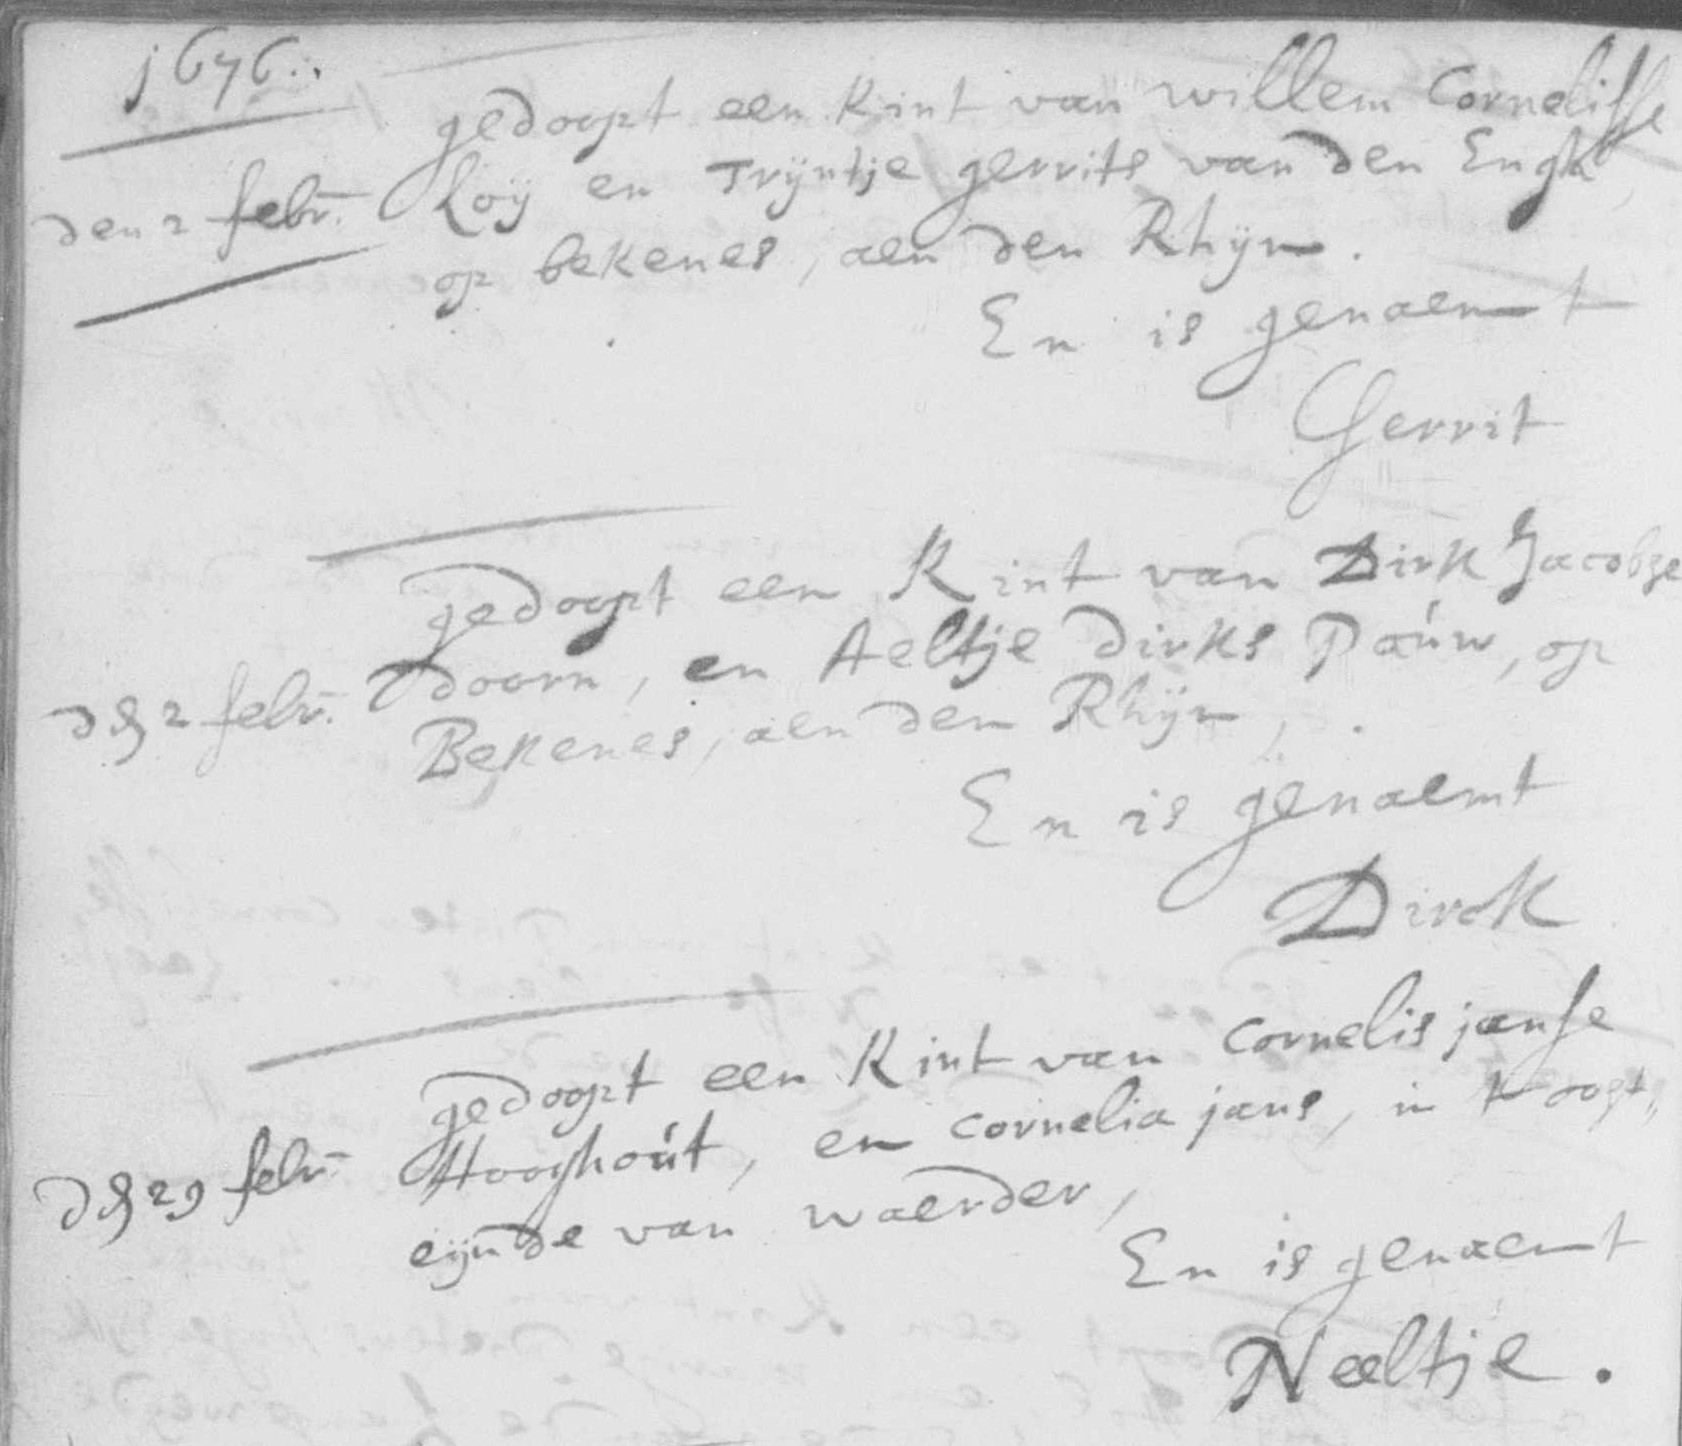 1676.
gedoopt een Kint van willem Cornelisse
den 2 febr. Loÿ en Trÿntje gerrits van den Engh
op bekenes, aen den Rhÿn.
En is genaemt
Gerrit
gedoopt een Kint van Dirk Jacobze
den 2 febr. doorn, en Aeltje Dirks Paúw, op
Bekenes, aen den Rhÿn,
En is genaemt
Dirck
gedoopt een Kint van Cornelis janse
den 29 febr. Hooghoút, en Cornelia jans, in t oost,,
eÿnde van waerder,
En is genaemt
Neeltje.